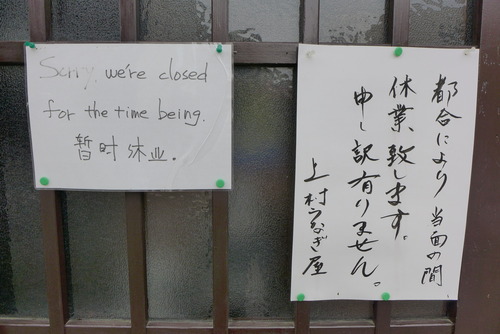 Sorry, we're closed
for the time being.
暂时休业.
都合により当面の間
休業致します。
申し訳有りません。
上村うなぎ屋